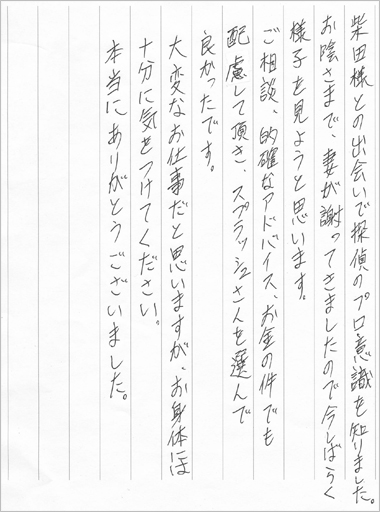 柴田様との出会いで探偵のプロ意識を知りました。
お陰さまで、妻が謝ってきましたので今しばらく
様子を見ようと思います。
ご相談、的確なアドバイス、お金の件でも
配慮して頂き、スプラッシュさんを選んで
良かったです。
大変なお仕事だと思いますが、お身体は
十分に気をつけてください。
本当にありがとうございました。